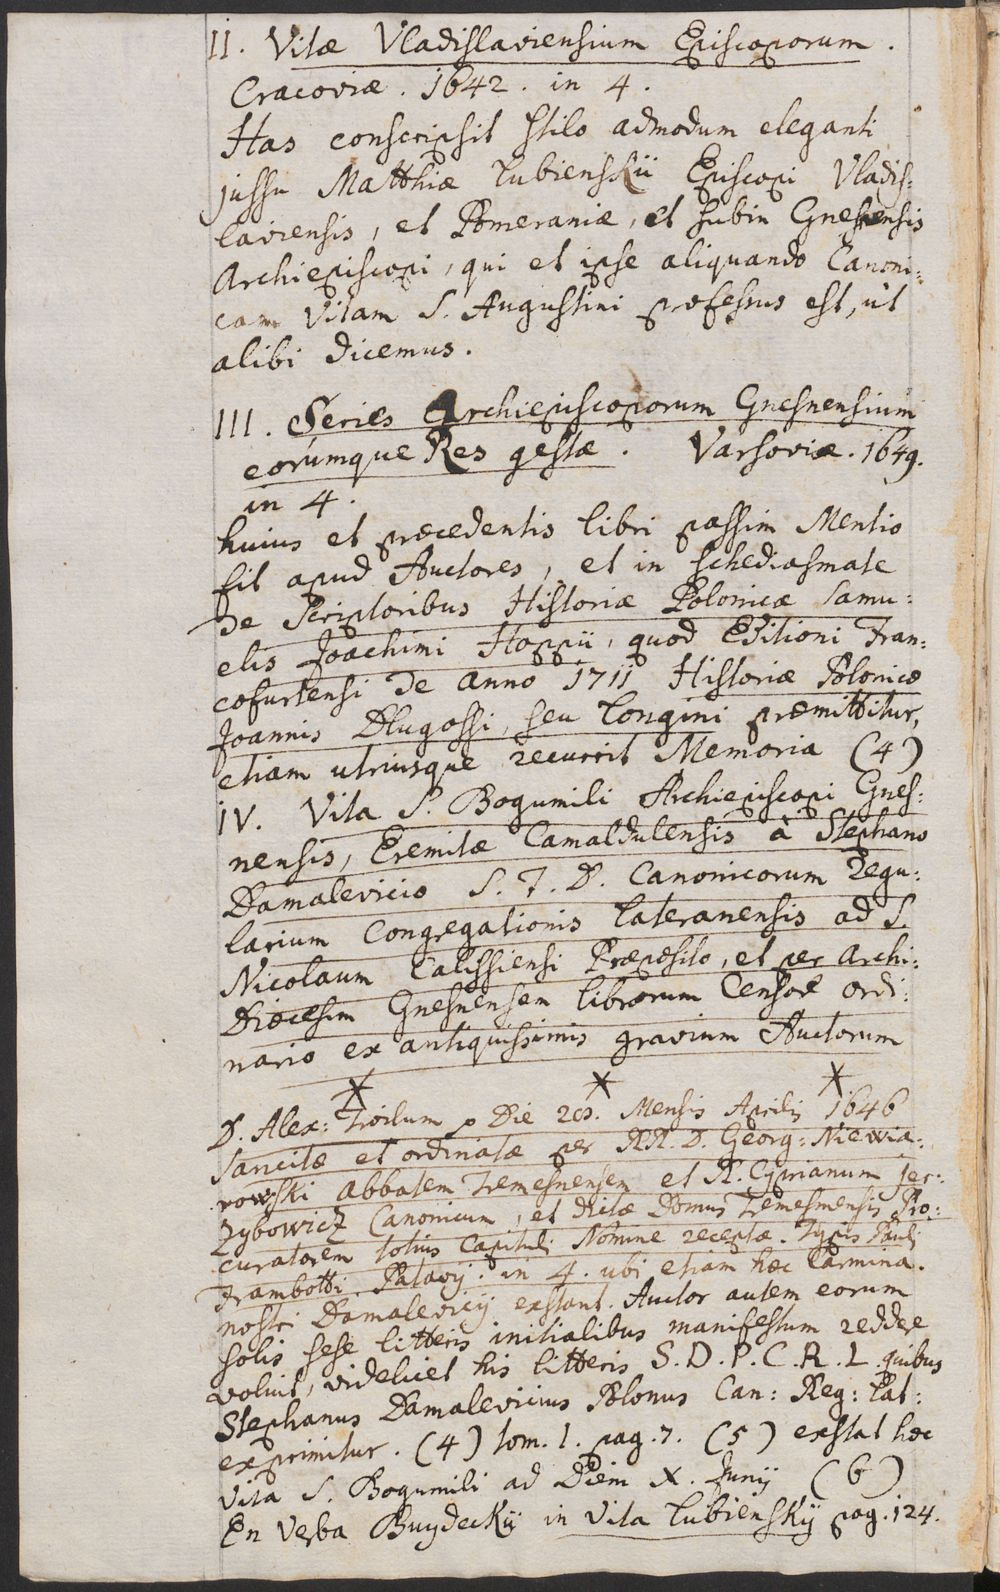 II. Vitæ Vladislaviensium Episcoporum.
Cracoviæ. 1642. in 4.
Has conscripsit stilo admodum eleganti
jussu Matthiæ Lubienskii Episcopi Vladis=
laviensis, et Pomeraniæ, et subin Gnesnensis
Archiepiscopi, qui et ipse aliquando Canoni=
cam Vitam S. Augustini professus est, ut
alibi dicemus.
III. Series Archiepiscoporum Gnesnensium
eorumque Res gestæ. Varsoviæ. 1649.
in 4.
huius et præcedentis libri passim Mentio
fit apud Auctores, et in schediasmate
de Scriptoribus Historiæ Polonicæ Samu=
elis Joachimi Hoppii, quod Editioni Fran=
cofurtensi de Anno 1711 Historiæ Polonicæ
Joannis Dlugossi, seu Longini præmittitur,
etiam utriusque recurrit Memoria (4)
IV. Vita S. Bogumili Archiepiscopi Gnes=
nensis, Eremitæ Camaldulensis à Stephano
Damalevicio S. T. D. Canonicorum Regu=
larium Congregationis Lateranensis ad S.
Nicolaum Calissiensi Præposito, et per Archi=
Diœcesim Gnesnensem librorum Censore ordi=
nario ex antiquissimis gravium Auctorum
* * *
D. Alex: Troilum Die 20. Mensis Aprilis 1646
sancitæ et ordinatæ per RR. D. Georg: Niewia=
rowski Abbatem Tremesnensem et R. Cyprianum Jer=
zybowicz Canonicum, et dictæ Domus Tremesmensis Pro=
curatorem totius Capituli Nomine receptæ. Typis Pauli
Frambotti. Patavij. in 4. ubi etiam hæc Carmina.
nostri Damalevicij exstant. Auctor autem eorum
solis sese litteris initialibus manifestum reddere
voluit, videlicet his litteris S. D. P. C. R. L. quibus
Stephanus Damalevicius Polonus Can: Reg: Lat:
exprimitur. (4) tom. 1. pag. 7. (5) exstat hæc
Vita S. Bogumili ad Diem X. Junij (6)
En Verba Buydeckij in Vita Lubienskij pag. 124.